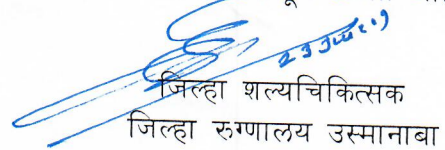 जिल्हा शल्यचिकित्सक
जिल्हा रुग्णालय उस्मानाबा